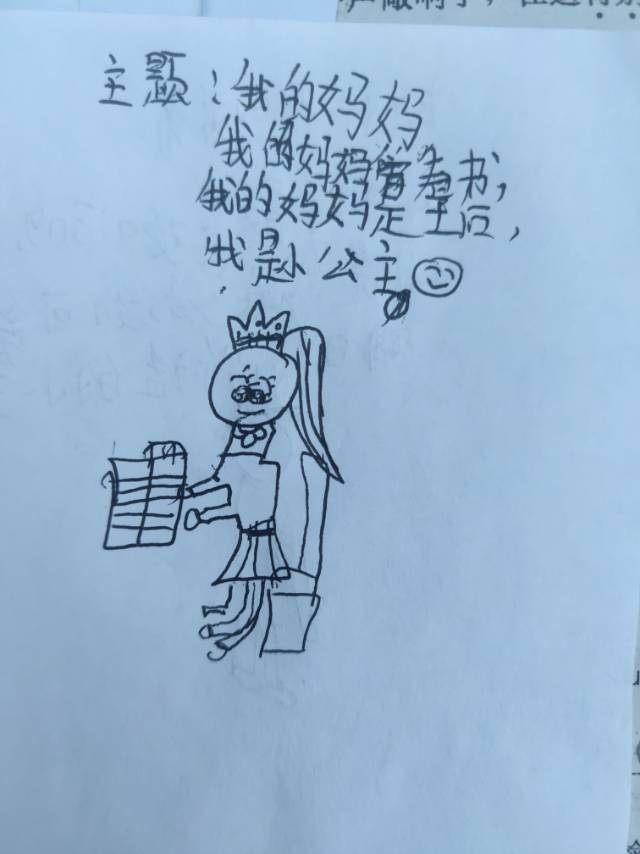 主题：我的妈妈
我的妈妈爱看书，
我的妈妈是皇后，
我是小公主